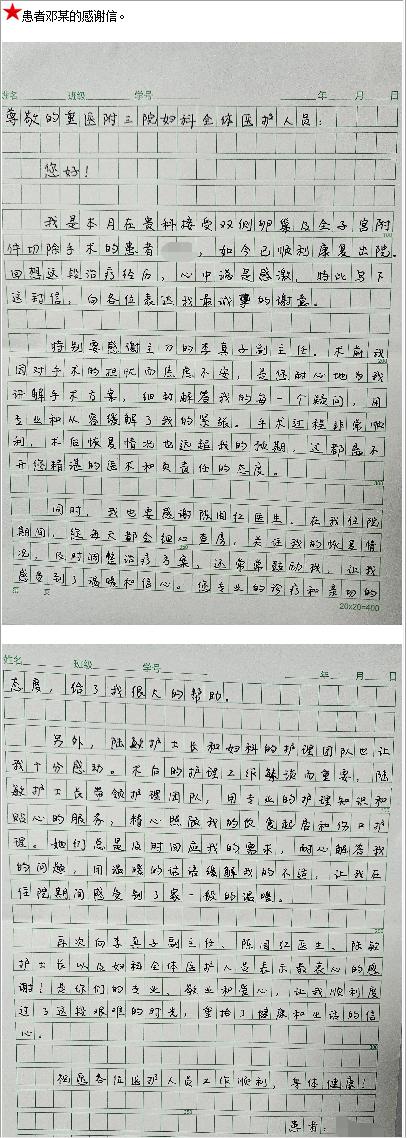 ★患者邓某的感谢信。
姓名 班级 学号 年 月 日
尊敬的重医附三院妇科全体医护人员：
您好！
我是本月在贵科接受双侧卵巢及全子宫附
件切除手术的患者 ，如今已顺利康复出院。
回想这段治疗经历，心中满是感激，特此写下
这封信，向各位表达我最诚挚的谢意。
特别要感谢主刀的李真子副主任。术前我
因对手术的担忧而焦虑不安，是您耐心地为我
讲解手术方案，细致解答我的每一个疑问，用
专业和从容缓解了我的紧张。手术过程非常顺
利，术后恢复情况也远超我的预期，这都离不
开您精湛的医术和负责任的态度。
同时，我也要感谢陈国红医生。在我住院
期间，您每天都会细心查房，关注我的恢复情
况，及时调整治疗方案，还常常鼓励我，让我
感受到了温暖和信心。您专业的诊疗和亲切的
页 20×20=400
姓名 班级 学号 年 月 日
态度，给了我很大的帮助。
另外，陆敏护士长和妇科的护理团队也让
我十分感动。术后的护理工作繁琐而重要，陆
敏护士长带领护理团队，用专业的护理知识和
贴心的服务，精心照顾我的饮食起居和伤口护
理。她们总是及时回应我的需求，耐心解答我
的问题，用温暖的话语缓解我的不适，让我在
住院期间感受到了家一般的温暖。
再次向李真子副主任、陈国红医生、陆敏
护士长以及妇科全体医护人员表示最衷心的感
谢！是你们的专业、敬业和爱心，让我顺利度
过了这段艰难的时光，重拾了健康和生活的信
心。
祝愿各位医护人员工作顺利，身体健康！
患者：